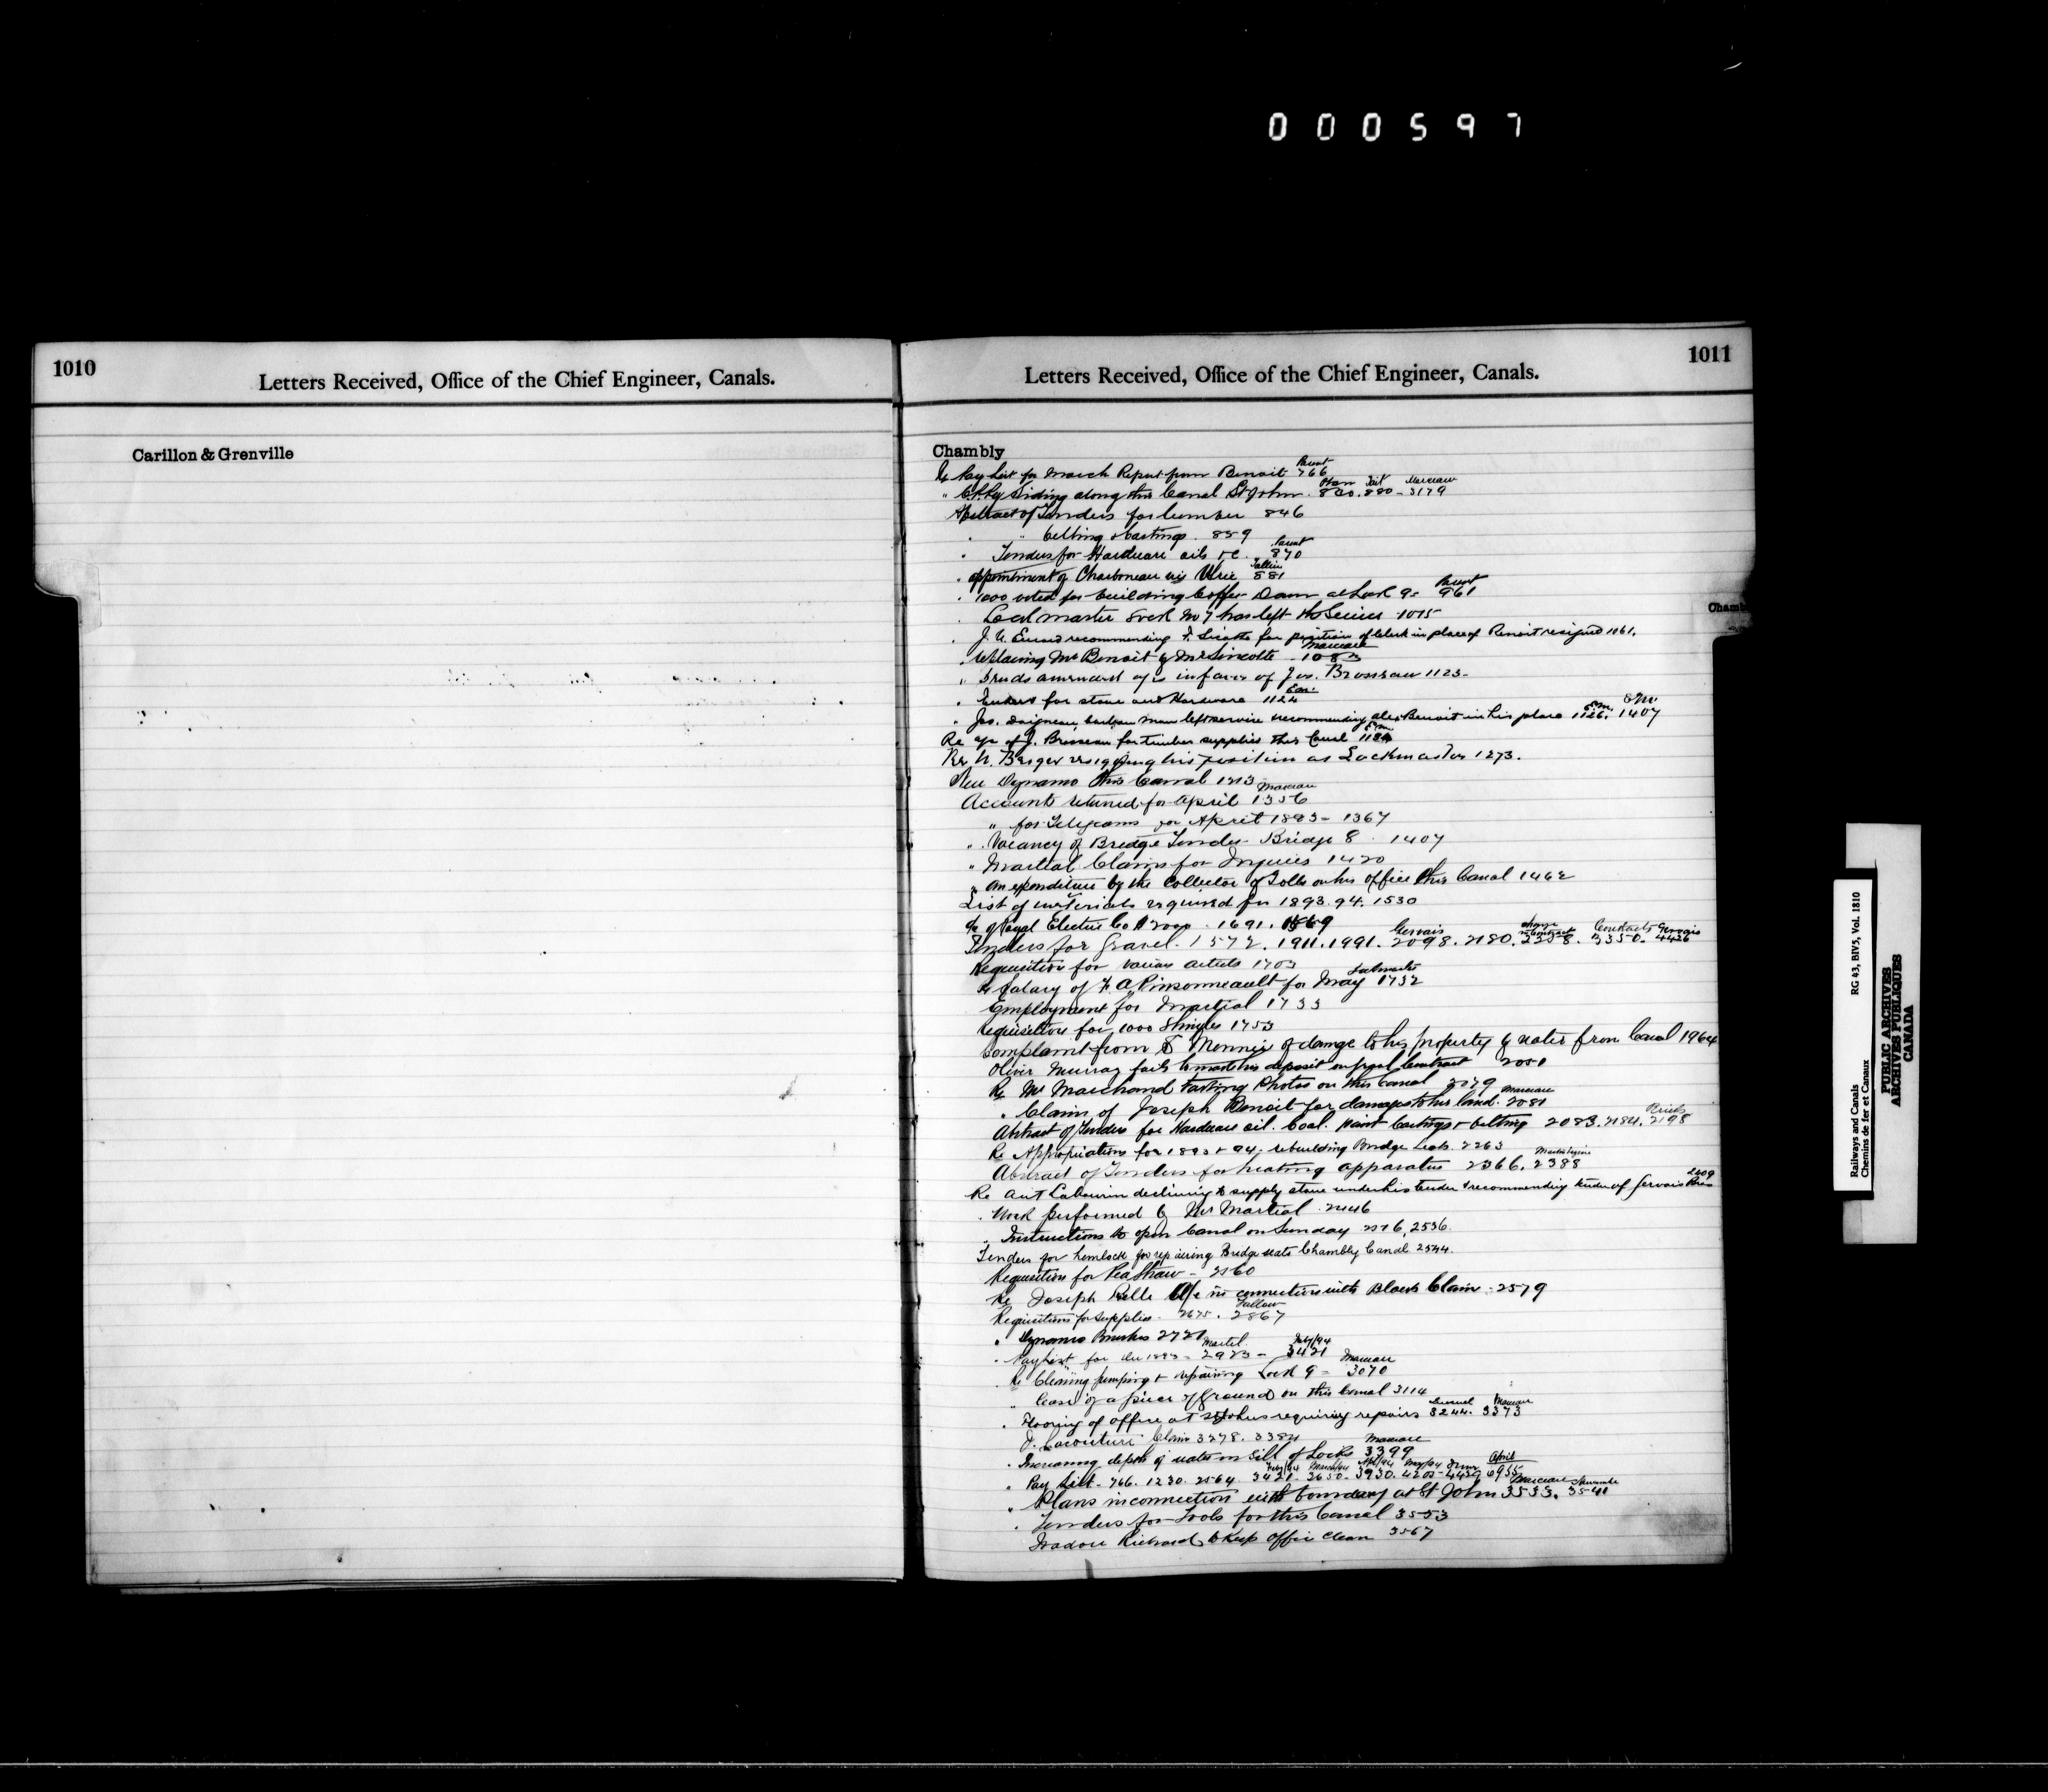 000597
1010
Letters Received, Office of the Chief Engineer, Canals.
Carillon & Grenville
1011
Letters Received, Office of the Chief Engineer, Canals.
Chambly
Re Pay List for March Report from Benoit Parent 766
" Siding along this Canal St John 820. 880 - Marceau 3179
Abstract of Tenders for lumber 846
" " belting & castings. 859
" Tenders for Hardware oils &c. Parent 870
" appointment of Charboneau vis Ulric 881
" 1000 voted for building Coffer Dam at Lock 9 - Parent 961
" Lockmaster Lock No 7 has left the Service 1075
" J. U. recommending F. for position of Clerk in place of Benoit resigned 1061.
" replacing Mr Benoit by Mr Marceau 1083
" Sends amended a/c in favor of Jos. Brosseau 1123 -
" Tenders for stone and Hardware 1124
" Jos. Daigneau, man left service recommending Alex Benoit in his place 1126. 1407
Re a/c of J. Brosseau for timber supplies this Canal 1184
Re N. Berger resigning his position as Lockmaster 1273.
New Dynamo this Canal 1313
Accounts returned for April Marceau 1356
" for Telegrams for April 1893 - 1367
" Vacancy of Bridge Tender Bridge 8 1407
" Martial Claims for Injuries 1420
" an expenditure by the Collector of Tolls on his office this Canal 1462
List of materials required for 1893.94. 1530
a/c of Royal Electric Co 1691. 1569
Tenders for Gravel. 1572. 1911. 1991. Gervais 2098. 2180. 2258. Contracts 3350. Gervais 4426
Requisition for various articles 1703
Re Salary of F. A. Pinsonneault for May Lockmaster 1732
Employment for Martial 1733
requisition for 1000 Shingles 1753
Complaint from of damage to his property by water from Canal 1964
Oliver Murray fails to make his deposit on Contract
Re Mr Marchand taking Photos on this Canal 2079
" Claim of Joseph Benoit for damages to his land. Marceau 2081
Abstract of Tenders for Hardware oil. Coal. Paint Castings & belting 2083. 2184. 2198
Re Appropriations for 1893 & 94, rebuilding Bridge 2263
Abstract of Tenders for heating apparatus 2366. 2388
Re Ant Labourin declining to supply stone under his tender & recommending tender of Gervais 2409
" Work performed by Mr Martial 2446
" Instructions to open Canal on Sunday 2536
Tenders for hemlock for repairing Bridge seats Chambly Canal 2544.
Requisition for Pea Straw - 2560
Re Joseph Belle a/c in connection with Black Claim - 2579
Requisitions for Supplies 2675. 2867
" Dynamo Brushes 2721
" Pay List for Dec 1893 - 2923 - Feby/94 3421
Re Cleaning pumping & repairing Lock 9 - Marceau 3070
" lease of a piece of Ground on this Canal 3114
" Flooring of office at St Johns requiring repairs 3244. Marceau 3373
Claim 3278. 3384
" Increasing depth of water on Sill of Locks Marceau 3399
" Pay List - 766. 1230. 2564. Feby/94 3421. March/94 3650. Apl/94 3930. May/94 4202 - June 4439 April 6955
" Plans in connection with boundary at St John Marceau 3533. 3541
" Tenders for Tools for this Canal 3553
Richard to keep office clean 3567
Chamb
Railways and Canals
RG 43, BIV5, Vol. 1810
Chemins de fer et Canaux
PUBLIC ARCHIVES
ARCHIVES PUBLIQUES
CANADA